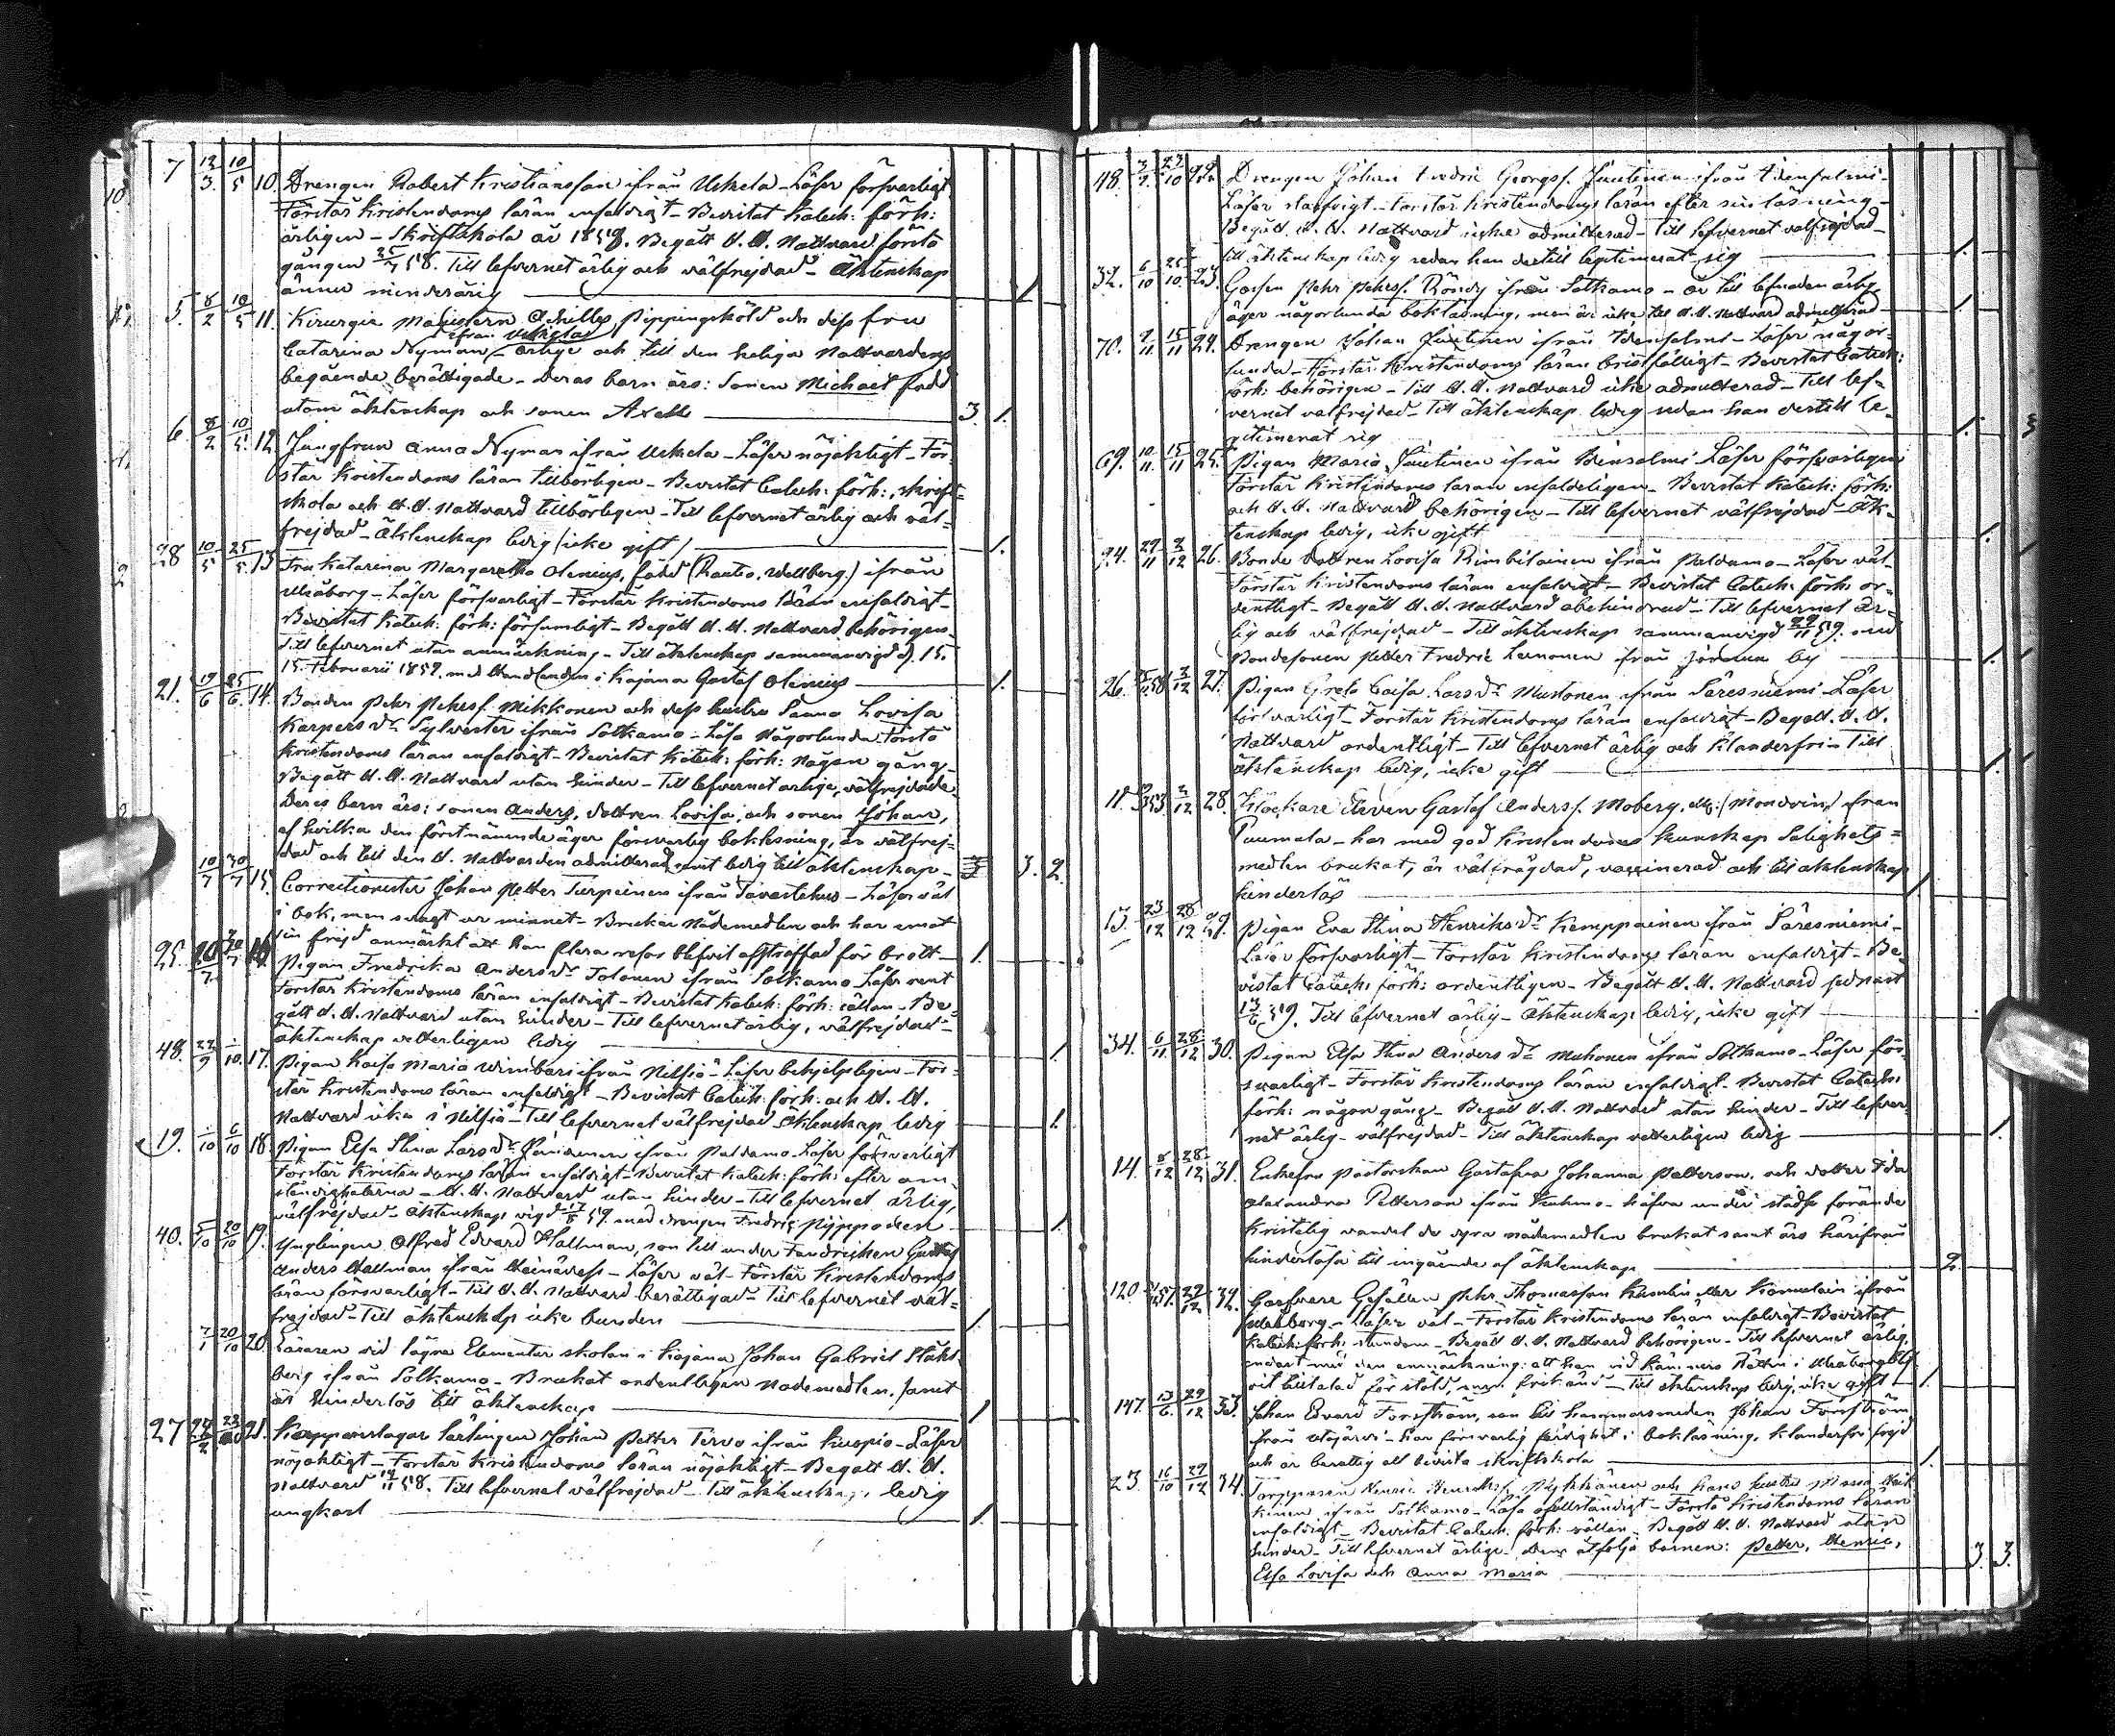 7 12/3 10/5 10. Drengen Robert Kristiansson ifrån Uskela - Läser försvarligt
Förstår Kristendoms läran enfaldigt - Bevistat Katech: förh:
ärligen - Skriftskola år 1858. Begått H. H. Nattvard första
gången 25/7 58. Till lefvernet ärlig och välfrejdad - Äktenskap
ännu minderårig 1.
5. 8/2 10/5 11 Kirurgie Magistern Achilles Pippingsköld och dess fru
ifrån Uskela
Catarina Nyman - ärlige och till den heliga Nattvardens
begående berättigade - Deras barn äro: Sonen Michael född
utom äktenskap och sonen Axel 3. 1.
6. 8/2 10/5 12. Jungfrun Anna Nyman ifrån Uskela - Läser nöjaktigt - För-
står Kristendoms läran tillbörligen - Bevistat Catech: förh:, skrift-
skola och H. H. Nattvard tillbörligen - Till lefvernet ärlig och väl-
frejdad - Äktenskap ledig (icke gift) 1.
28 10/5 25/5 13 Fru Katarina Margaretha Olenius, född (Rautio, Wellberg.) ifrån
Uleåborg - Läser försvarligt - Förstår Kristendoms läran enfaldigt -
Bevistat Katech: förh: försumligt - Begått H. H. Nattvard behörigen -
Till lefvernet utan anmärkning - Till äktenskap sammanvigd d. 15.
15. Februarii 1859. med Handlanden i Kajana Gustaf Olenius 1.
21. 19/6 25/6 14. Bonden Pehr Pehrss. Mikkonen och dess hustru Sanna Lovisa
Karpers dr Sylvester ifrån Sotkamo - Läsa någorlunda förstå
Kristendoms läran enfaldigt - Bevistat Katech: förh: någon gång -
Begått H. H. Nattvard utan hinder - Till lefvernet ärlige, välfrejdade
Deras barn äro: sonen Anders, dottren Lovisa, och sonen Johan,
af hvilka den förstnämnde äger försvarlig bokläsning, är välfrej-
dad och till den H. Nattvarden admitterad samt ledig till äktenskap - 3. 2.
10/7 30/7 15. Correctionisten Johan Petter Turpeinen ifrån Tavastehus - Läser väl
i bok, men svagt ur minnet - Brukar Nådemedlen och har emot
sin frejd anmärkt att han flera resor blifvit afstraffad för brott - 1.
25. 20/7 16. Pigan Fredrika Anders dr Tolonen ifrån Sotkamo Läser rent
Förstår Kristendoms läran enfaldigt - Bevistat Katech: förh: sällan - Be-
gått H. H. Nattvard utan hinder - Till lefvernet ärlig, välfrejdad -
äktenskap vetterligen ledig 1.
48. 22/9 1/10. 17. Pigan Kaisa Maria Wimbari ifrån Nilsiä - Läser behjelpligen - För-
står Kristendoms läran enfaldigt - Bevistat Catech: förh: och H. H.
Nattvard icke i Nilsiä - Till lefvernet välfrejdad Äktenskap ledig 1.
19. 1/10 6/10 18 Pigan Elsa Stina Lars dr ifrån Paldamo Läser försvarligt
Förstår Kristendoms läran enfaldigt - Bevistat Katech: förh: efter om-
ständigheterna - H. H. Nattvard utan hinder - Till lefvernet ärlig,
välfrejdad - Äktenskap vigd 59. med drengen Fredric Pyppönen 1
40. 5/10 20/10 19. Ynglingen Alfred Edvard Hallman, son till under Fendrichen Gustaf
Anders Hallman ifrån Heinävesi - Läser väl - Förstår Kristendoms
läran försvarligt - Till H. H. Nattvard berättigad - Till lefvernet väl-
frejdad - Till äktenskap icke bunden 1
7/1 20/10 20 Läraren vid lägre Elementar skolan i Kajana Johan Gabriel Ståhl-
berg ifrån Sotkamo - Brukat ordentligen Nådemedlen, samt
är hinderlös till äktenskap 1
27 21. Kopparslagar lärlingen Johan Petter Tervo ifrån Kuopio - Läser
nöjaktigt - Förstår Kristendoms läran nöjaktigt - Begått H. H.
Nattvard 58. Till lefvernet välfrejdad - Till äktenskap ledig
ungkarl 1.
48. 22. Drengen Johan Fredric Georgs. Juutinen ifrån Idensalmi -
Läser slarfvigt - Förstår Kristendoms läran efter sin läsning -
Begått H. H. Nattvard icke admitterad - Till lefvernet välfrejdad -
till äktenskap ledig sedan han dertill legitimerat sig 1.
32. 6/10 25/10. 23. Gossen Pehr Pehrss. Röndy ifrån Sotkamo - är till lefnaden ärlig
äger någorlunda bokläsning, men är icke till H. H. Nattvard admitterad 1.
70. 9/11 15/11 24. Drengen Johan Juutinen ifrån Idensalmi - Läser någor-
lunda - Förstår Kristendoms läran bristfälligt - Bevistat Catech:
förh: behörigen - Till H. H. Nattvard icke admitterad - Till lef-
vernet välfrejdad - Till äktenskap ledig sedan han dertill le-
gitimerat sig 1.
69. 10/11. 15/11 25. Pigan Maria Juutinen ifrån Idensalmi Läser försvarligen
Förstår Kristendoms läran enfaldeligen - Bevistat Katech: förh:
och H. H. Nattvard behörigen - Till lefvernet välfrejdad - Äk-
tenskap ledig, icke gift 1.
24. 29/11 2/12 26. Bonde dottren Lovisa Rimbiläinen ifrån Paldamo - Läser väl -
Förstår Kristendoms läran enfaldigt - Bevistat Catech: förh: or-
dentligt - Begått H. H. Nattvard obehindrad - Till lefvernet är-
lig och välfrejdad - Till äktenskap sammanvigd 29/11 59. med
Bondesonen Petter Fredric Leinonen från Jormua by 1.
26. 2/12 27. Pigan Greta Caisa Lars dr Mustonen ifrån Säresniemi Läser
försvarligt - Förstår Kristendoms läran enfaldigt - Begått H. H.
Nattvard ordentligt - Till lefvernet ärlig och klanderfri - Till
äktenskap ledig, icke gift 1.
11. 2/12 28. Klockare Eleven Gustaf Anders s. Moberg, från
Puumala - har med god Kristendoms kunskap Salighets-
medlen brukat, är välfrägdad, vaccinerad och till äktenskap
hinderlös 1
15. 23/12 28/12 29. Pigan Eva Stina Henriks dr Kemppainen ifrån Säresniemi -
Läser försvarligt - Förstår Kristendoms läran enfaldigt - Be-
vistat Catech: förh: ordentligen - Begått H. H. Nattvard sednast
59. Till lefvernet ärlig - Äktenskap ledig, icke gift
34. 6/11 28/12 30. Pigan Elsa Stina Anders dr Muhonen ifrån Sotkamo - Läser för-
svarligt - Förstår Kristendoms läran enfaldigt - Bevistat Catech:
förh: någon gång - Begått H. H. Nattvard utan hinder - Till lefver-
net ärlig - välfrejdad - Till äktenskap vetterligen ledig 1.
14. 8/12 28/12 31. Enkefru Pastorskan Gustafva Johanna Petterson, och dotter Ida
Alexandra Petterson ifrån Kuhmo - hafva under städse förande
Kristelig vandel de dyra nådemedlen brukat samt äro härifrån
hinderlösa till ingående af äktenskap 2.
120. 29/12 32. Garfvare Gesällen Pehr Thomasson ifrån
Uleåborg - Läser väl - Förstår Kristendoms läran enfaldigt - Bevistat
Katech: förh: stundom - Begått H. H. Nattvard behörigen - Till lefvernet ärlig
endast med den anmärkning: att han vid Kämners Rätten i Uleåborg blif-
vit tilltalad för stöld, men frikänd - Till äktenskap ledig, icke gift 1
147. 13/6. 29/12 33. Johan Edvard Forsström, son till hammarsmeden Johan Forsström
från - har försvarlig färdighet i bokläsning, klanderfri frejd
och är berättig att bivista skriftskola 1.
23. 16/10 29/12 34. Torpparen Henric Henrikss. och hans hustru Maria
ifrån Sotkamo - Läsa ofullständigt - Förstå Kristendoms läran
enfaldigt - Bevistat Catech: förh: sällan - Begått H. H. Nattvard utan
hinder - Till lefvernet ärlige - Dem åtfölja barnen: Petter, Henric,
Elsa Lovisa och Anna Maria 3. 3.